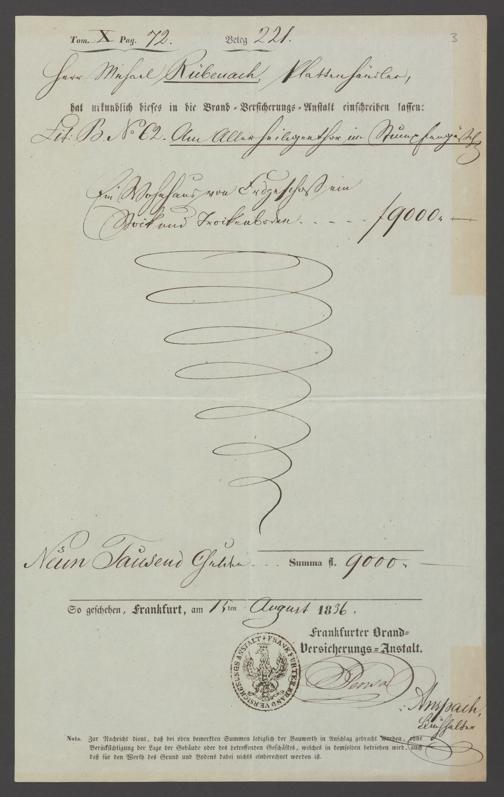 Tom. X Pag. 72. Beleg 221. 3
Herr Michael Rübenach, Plattenhändler,
hat urkundlich dieses in die Brand-Versicherungs-Anstalt einschreiben lassen:
Lit: B. No 62. Am Allerheiligenthor im
Ein Wohnhaus von Erdgeschoß ein
Stock und Trockenboden . . . . . f 9000.
Neun Tausend Gulden . . . Summa fl. 9000.
So geschehen, Frankfurt, am 15ten August 1836.
Frankfurter Brand-
Versicherungs-Anstalt.
FRANKFURTER BRANDVERSICHRGSANSTALT
Anspach,
Buchhalter
Nota. Zur Nachricht dient, daß bei oben bemerkten Summen lediglich der Bauwerth in Anschlag gebracht worden, ohne
Berücksichtigung der Lage der Gebäude oder des betreffenden Geschäftes, welches in demselben betrieben wird, auch
daß für den Werth des Grund und Bodens dabei nichts einberechnet worden ist.